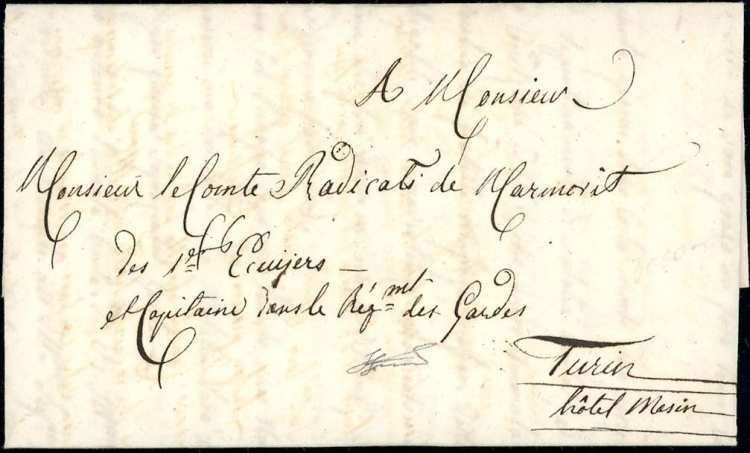 A Monsieur
Monsieur le Comte Radicati de Marmorit
des 1ers Ecuijers —
et Capitaine dans le Régmt des Gardes
Turin
hôtel Mesin